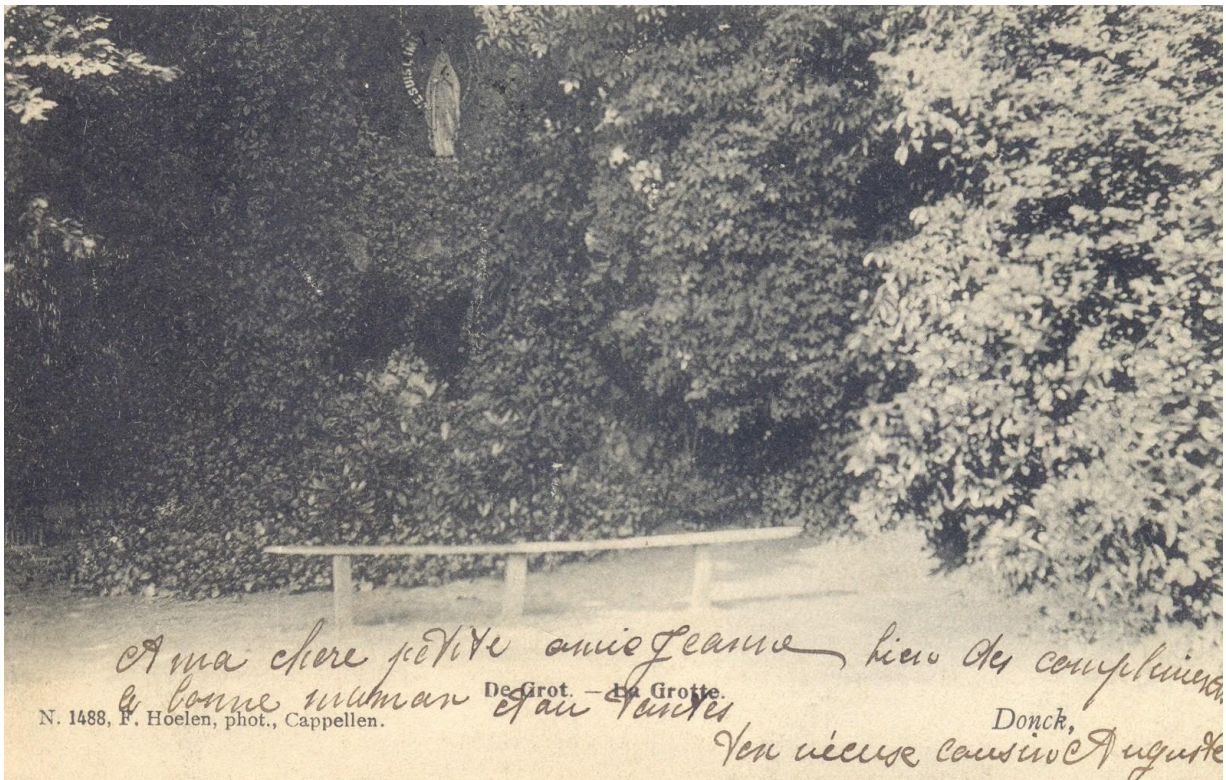 JE SUIS L'IM
A ma chere petite amie Jeanne bien des compliments
a bonne maman et au tantes
De Grot. — La Grotte.
N. 1488, F. Hoelen, phot., Cappellen.
Donck,
Ton vieuse cousin Auguste